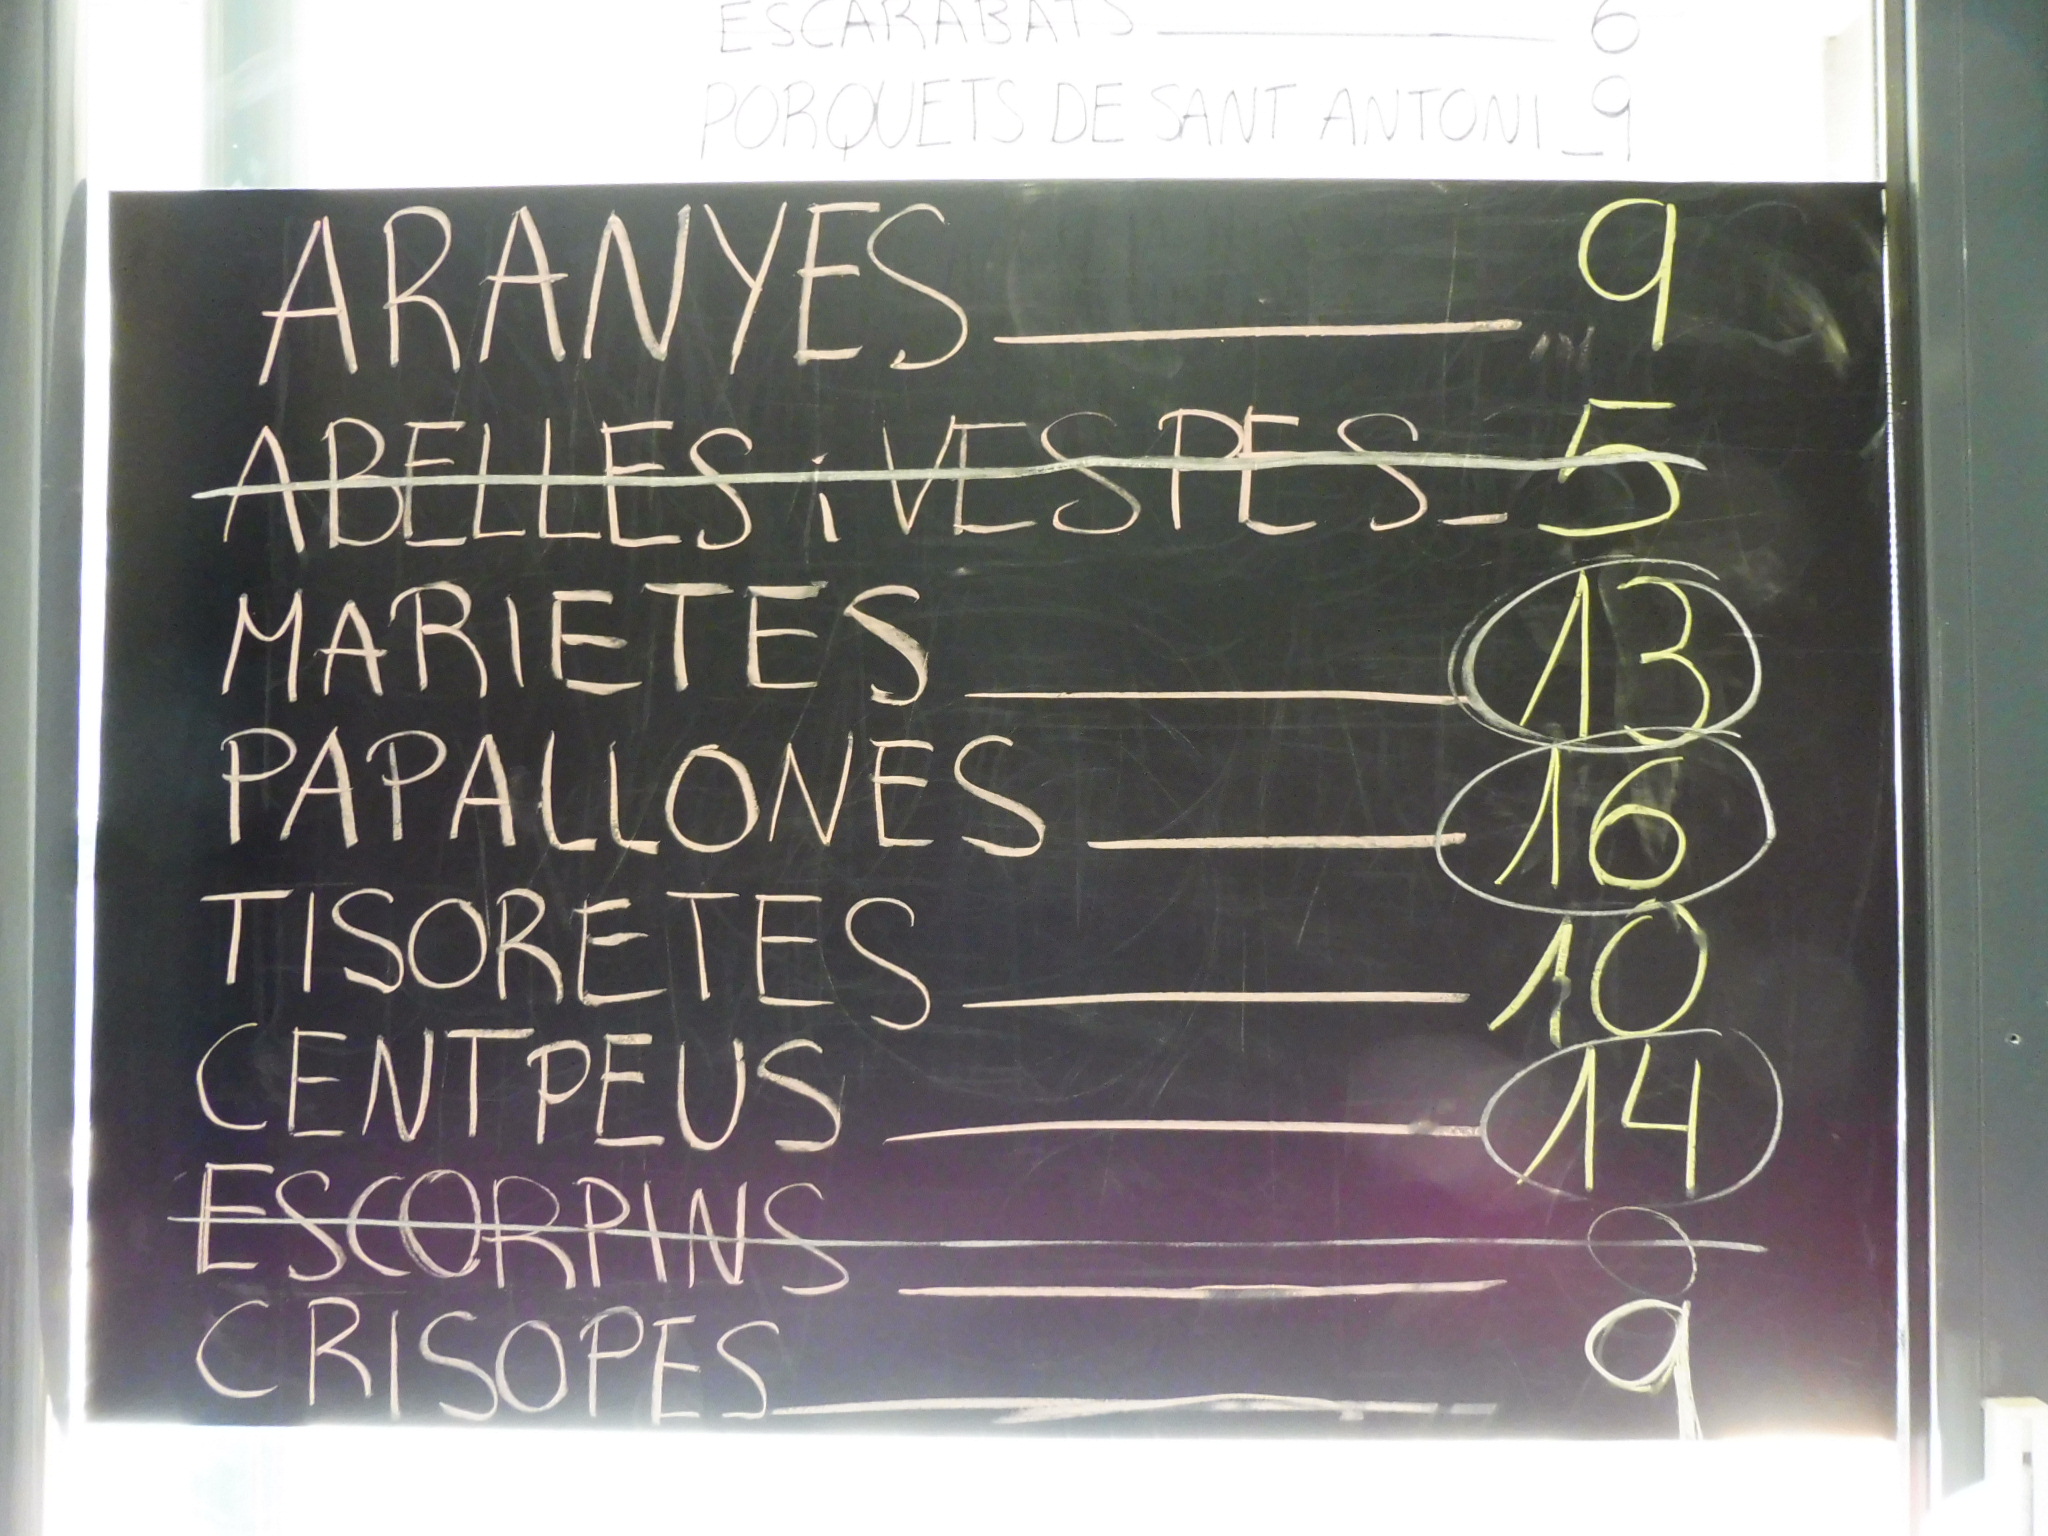 ESCARABATS 6
PORQUETS DE SANT ANTONI 9
ARANYES 9
ABELLES i VESPES 5
MARIETES 13
PAPALLONES 16
TISORETES 10
CENTPEUS 14
ESCORPINS 0
CRISOPES 9